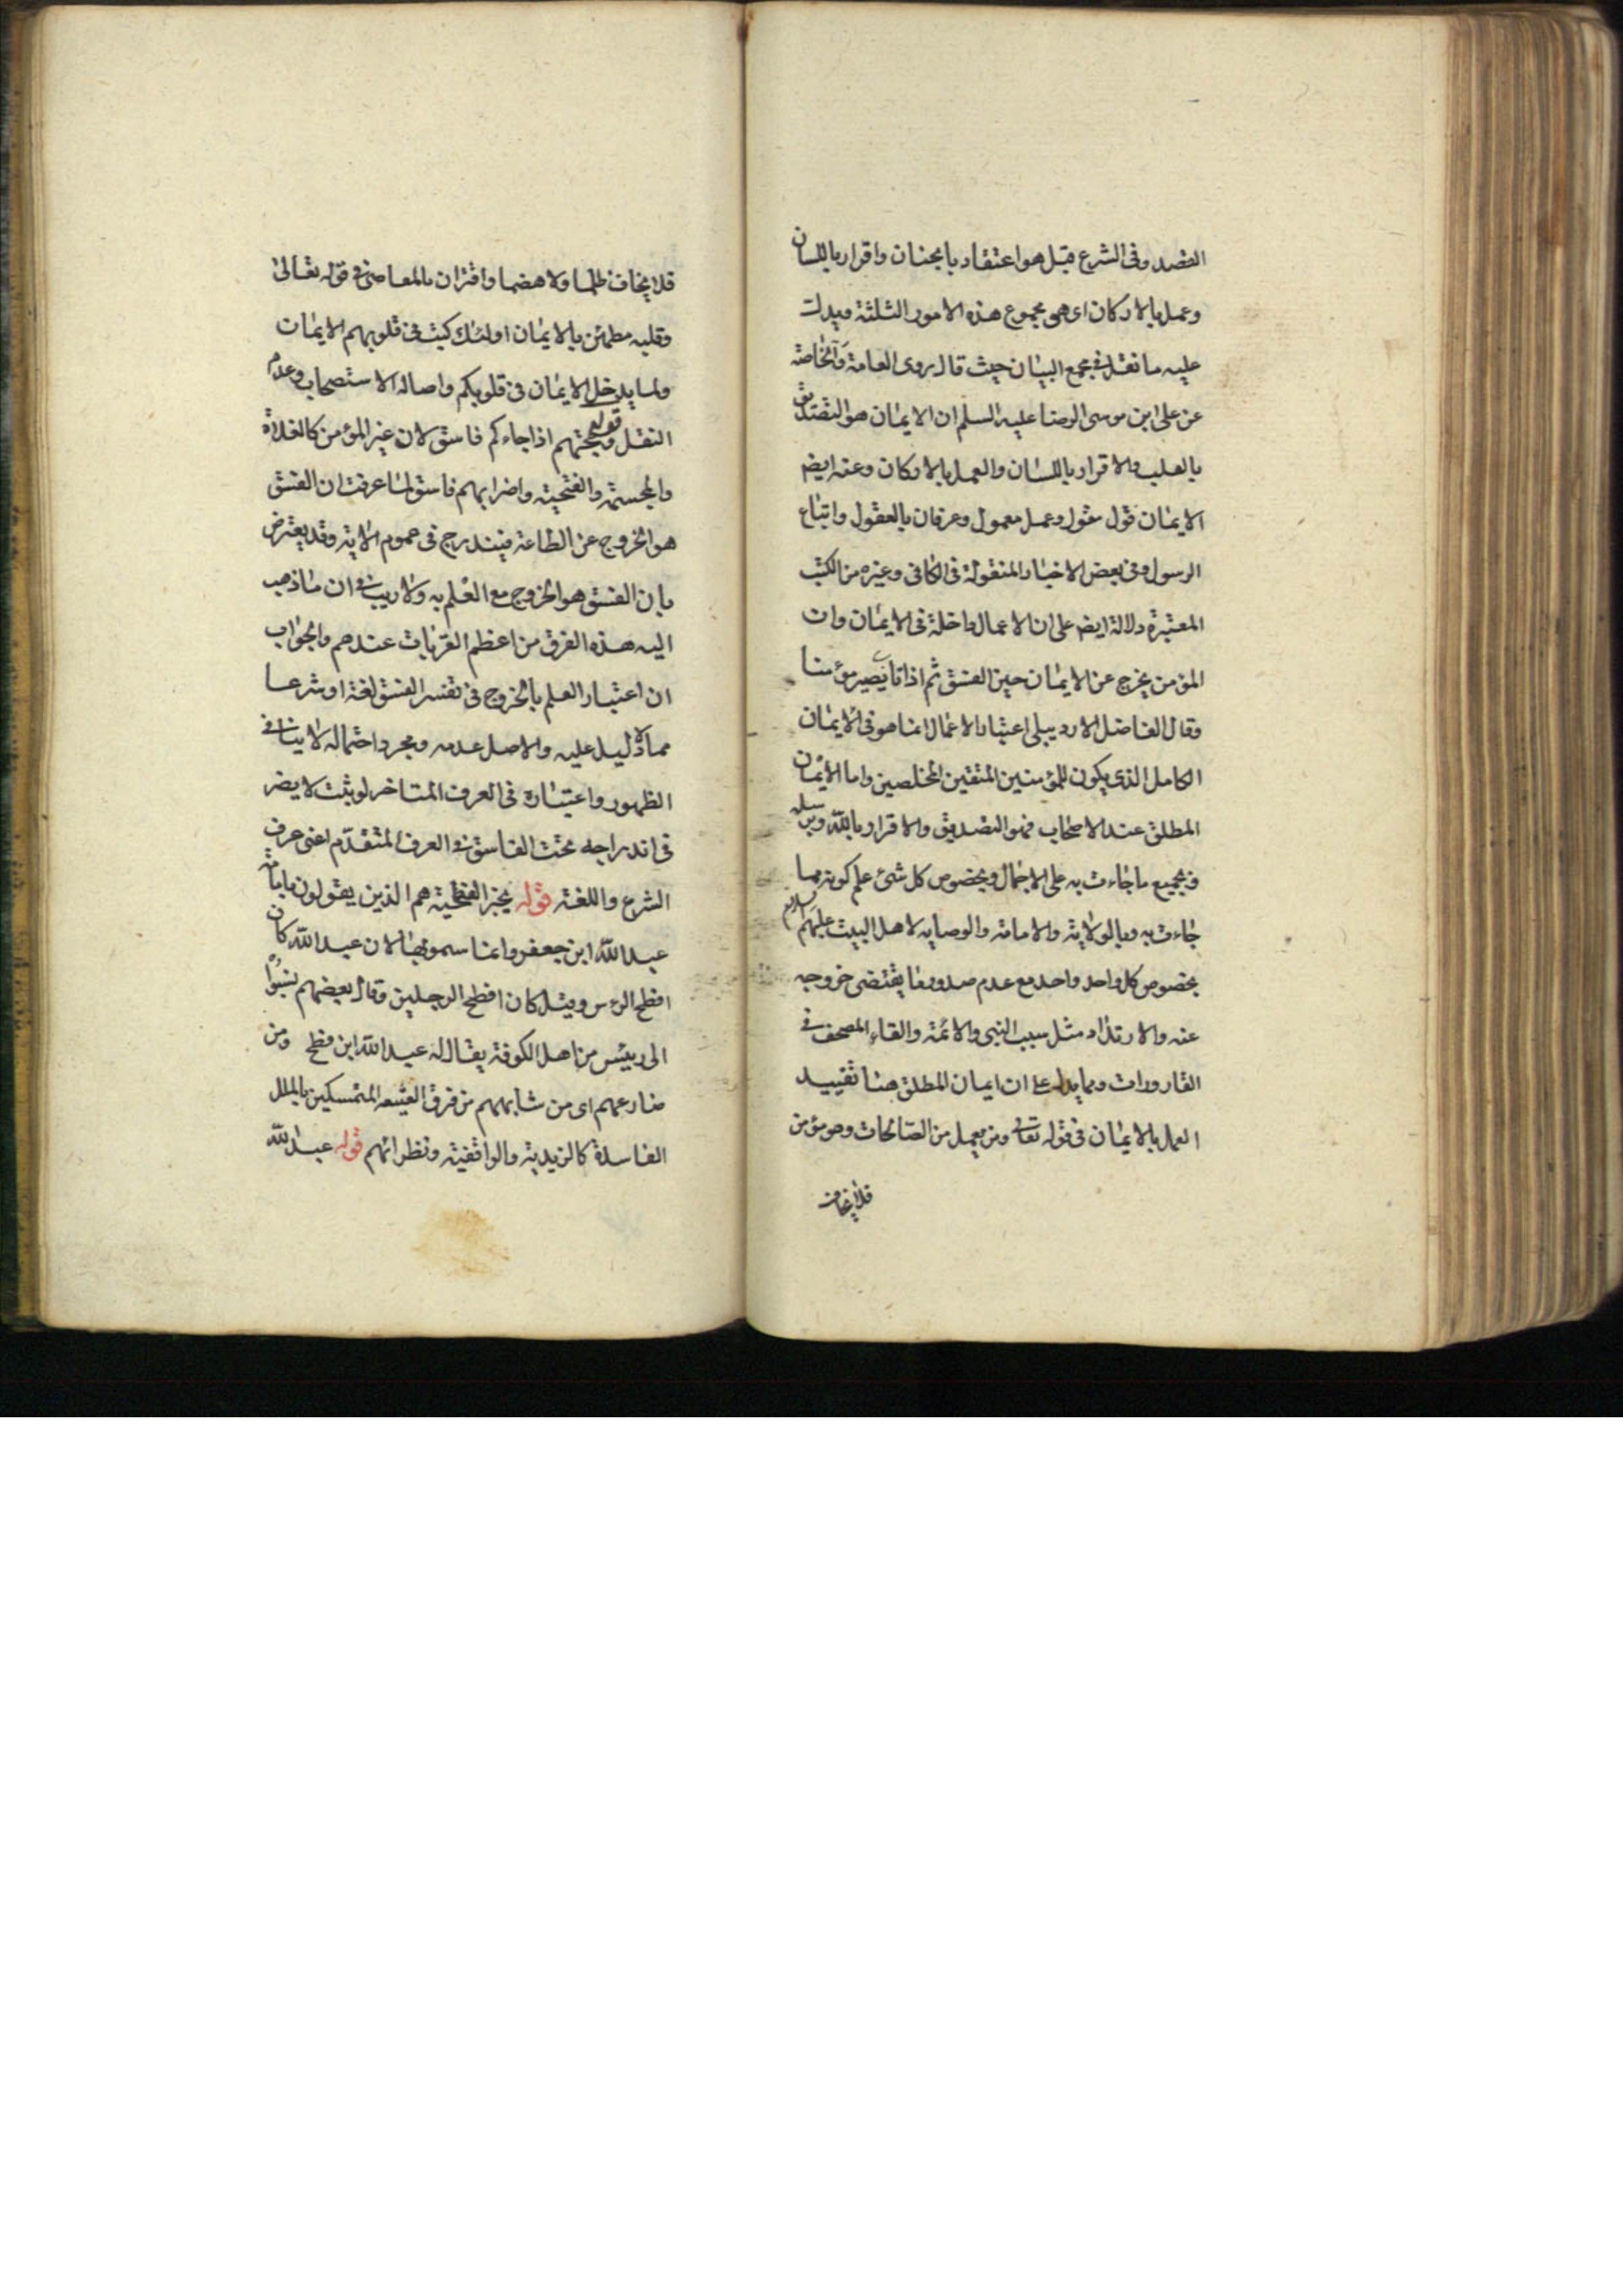 القصد وفى الشرع قيل هو اعتقاد بالجنان واقرار باللسان
وعمل بالاركان اى هى مجموع هذه الامور الثلثة ويدل
عليه ما نقل فى مجمع البيان حيث قال روى العامة والخاصة
عن على ابن موسى الرضا عليه السلم ان الايمان هو التصديق
بالقلب والاقرار باللسان والعمل بالاركان وعنه ايضم
الايمان قول مقول وعمل معمول وعرفان بالعقول واتباع
الرسول وفى بعض الاخبار المنقولة فى الكافى وغيره من الكتب
المعتبرة دلالة ايضم على ان الاعمال داخلة فى الايمان وان
المؤمن يخرج عن الايمان حين الفسق ثم اذا تاب يصير مؤمنا
وقال الفاضل الاردبيلى اعتبار الاعمال انما هو فى الايمان
الكامل الذى يكون للمؤمنين المتقين المخلصين واما الايمان
المطلق عند الاصحاب فهو التصديق والاقرار بالله وبرسله
وبجميع ما جاءت به على الاجمال وبخصوص كل شئ علم كونه مما
جاءت به وبالولاية والامامة والوصايه لاهل البيت عليهم السلام
بخصوص كل واحد واحد مع عدم صدور ما يقتضى خروجه
عنه والارتداد مثل سبب النبى والائمة والقاء المصحف فى
القاذورات ومما يدل على ان ايمان المطلق هنا تقييد
العمل بالايمان فى قوله تعالى ومن يعمل من الصالحات وهو مؤمن
فلا يخاف
فلا يخاف ظلما ولا هضما واقتران بالمعاصى فى قوله تعالى
وقلبه مطمئن بالايمان اولئك كتب فى قلوبهم الايمان
ولما يدخل الايمان فى قلوبكم واصالة الاستصحاب وعدم
النقل قوله وبحجتهم اذا جاءكم فاسق لان غير المؤمن كالغلاة
والمجسمة والفتحية واضرابهم فاسق لما عرفت ان الفسق
هو الخروج عن الطاعة فيندرج فى عموم الاية وقد يعترض
بان الفسق هو الخروج مع العلم به ولا ريب فى ان ما ذهب
اليه هذه الفرق من اعظم القربات عندهم والجواب
ان اعتبار العلم بالخروج فى تفسر الفسق لغة او شرعا
مما لا دليل عليه والاصل عدمه ومجرد احتماله لا ينافى
الظهور واعتباره فى العرف المتاخر لو ثبت لا يضر
فى اندراجه تحت الفاسق فى العرف المتقدم اعنى عرف
الشرع واللغة قوله بخبر الفطحية هم الذين يقولون بامامة
عبد الله ابن جعفر وانما سموا بها لان عبد الله كان
افطح الرءس وقيل كان افطح الرجلين وقال بعضهم نسبوا
الى رييس من اهل الكوفة يقال له عبد الله ابن فطح ومن
ضارعهم اى من شابههم من فرق الشيعه المتمسكين بالملل
الفاسدة كالزيدية والواقفية ونظرائهم قوله عبد الله